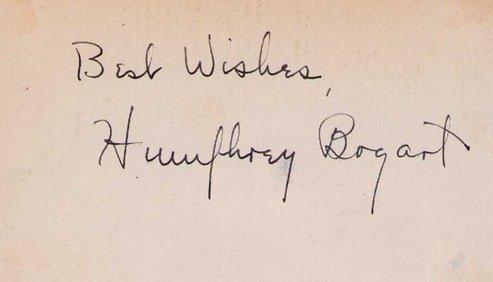 Best Wishes,
Humphrey Bogart